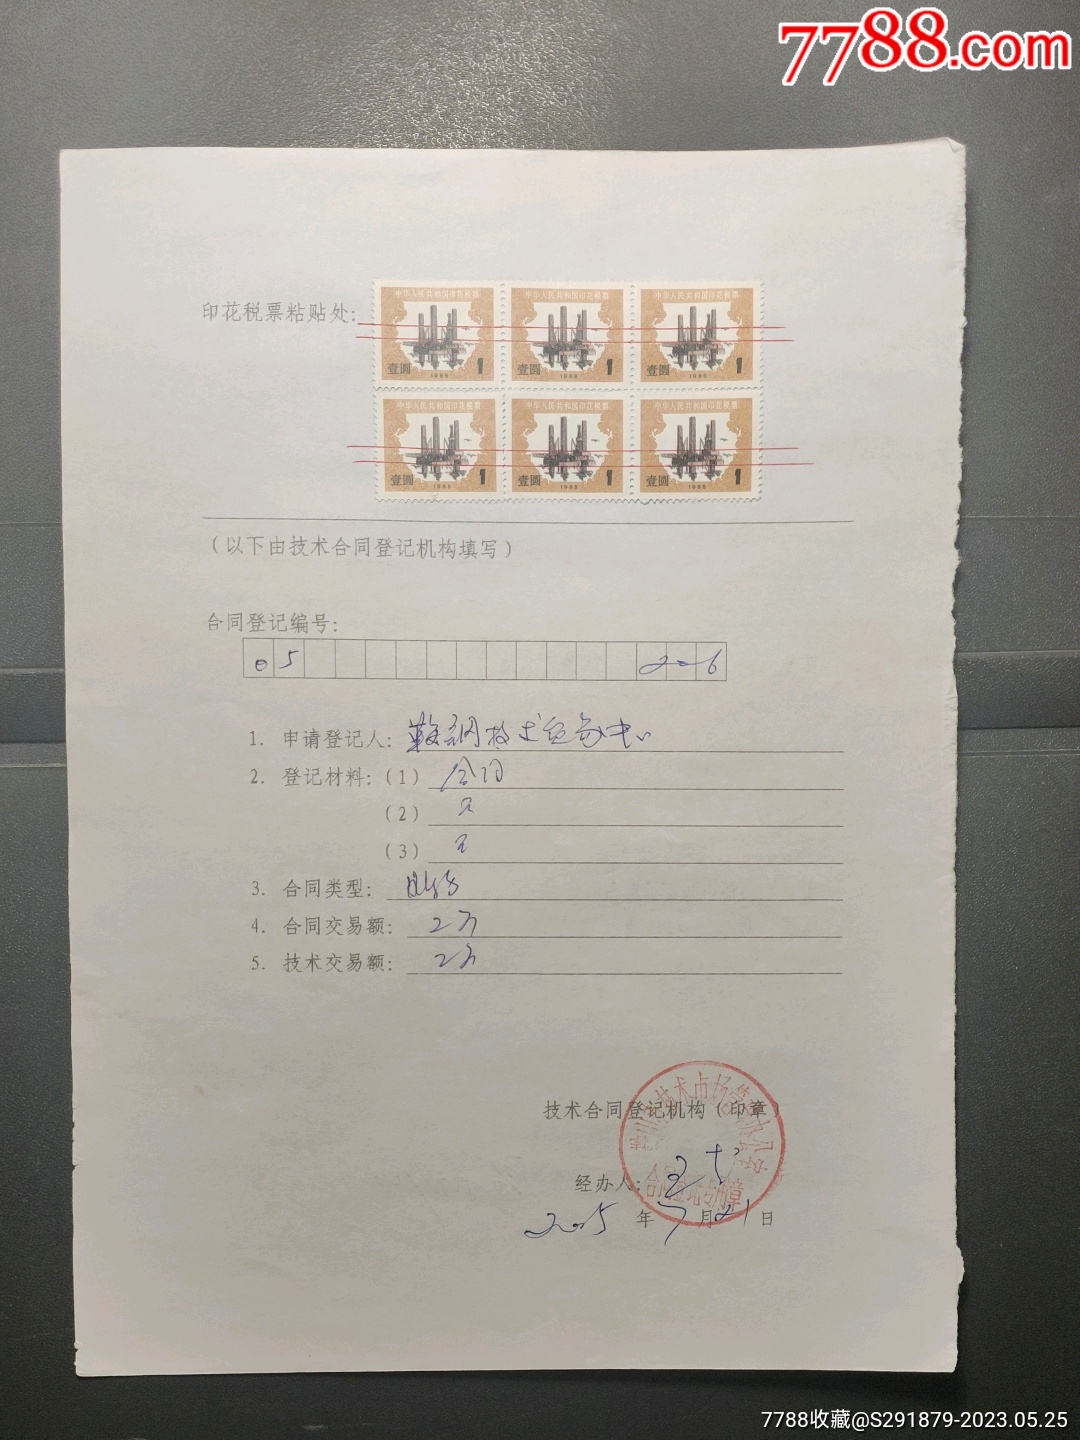 7788.com
印花税票粘贴处:
中华人民共和国印花税票 中华人民共和国印花税票 中华人民共和国印花税票
壹圆 1988 1 壹圆 1988 1 壹圆 1988 1
中华人民共和国印花税票 中华人民共和国印花税票 中华人民共和国印花税票
壹圆 1988 1 壹圆 1988 1 壹圆 1988 1
(以下由技术合同登记机构填写)
合同登记编号:
05 206
1. 申请登记人: 鞍钢技术贸易中心
2. 登记材料:(1) 合同
(2)
(3)
3. 合同类型:
4. 合同交易额: 2万
5. 技术交易额: 2万
技术合同登记机构(印章)
技术市场管理办公室
经办人:
合同登记专用章
2005年7月21日
7788收藏@S291879-2023.05.25